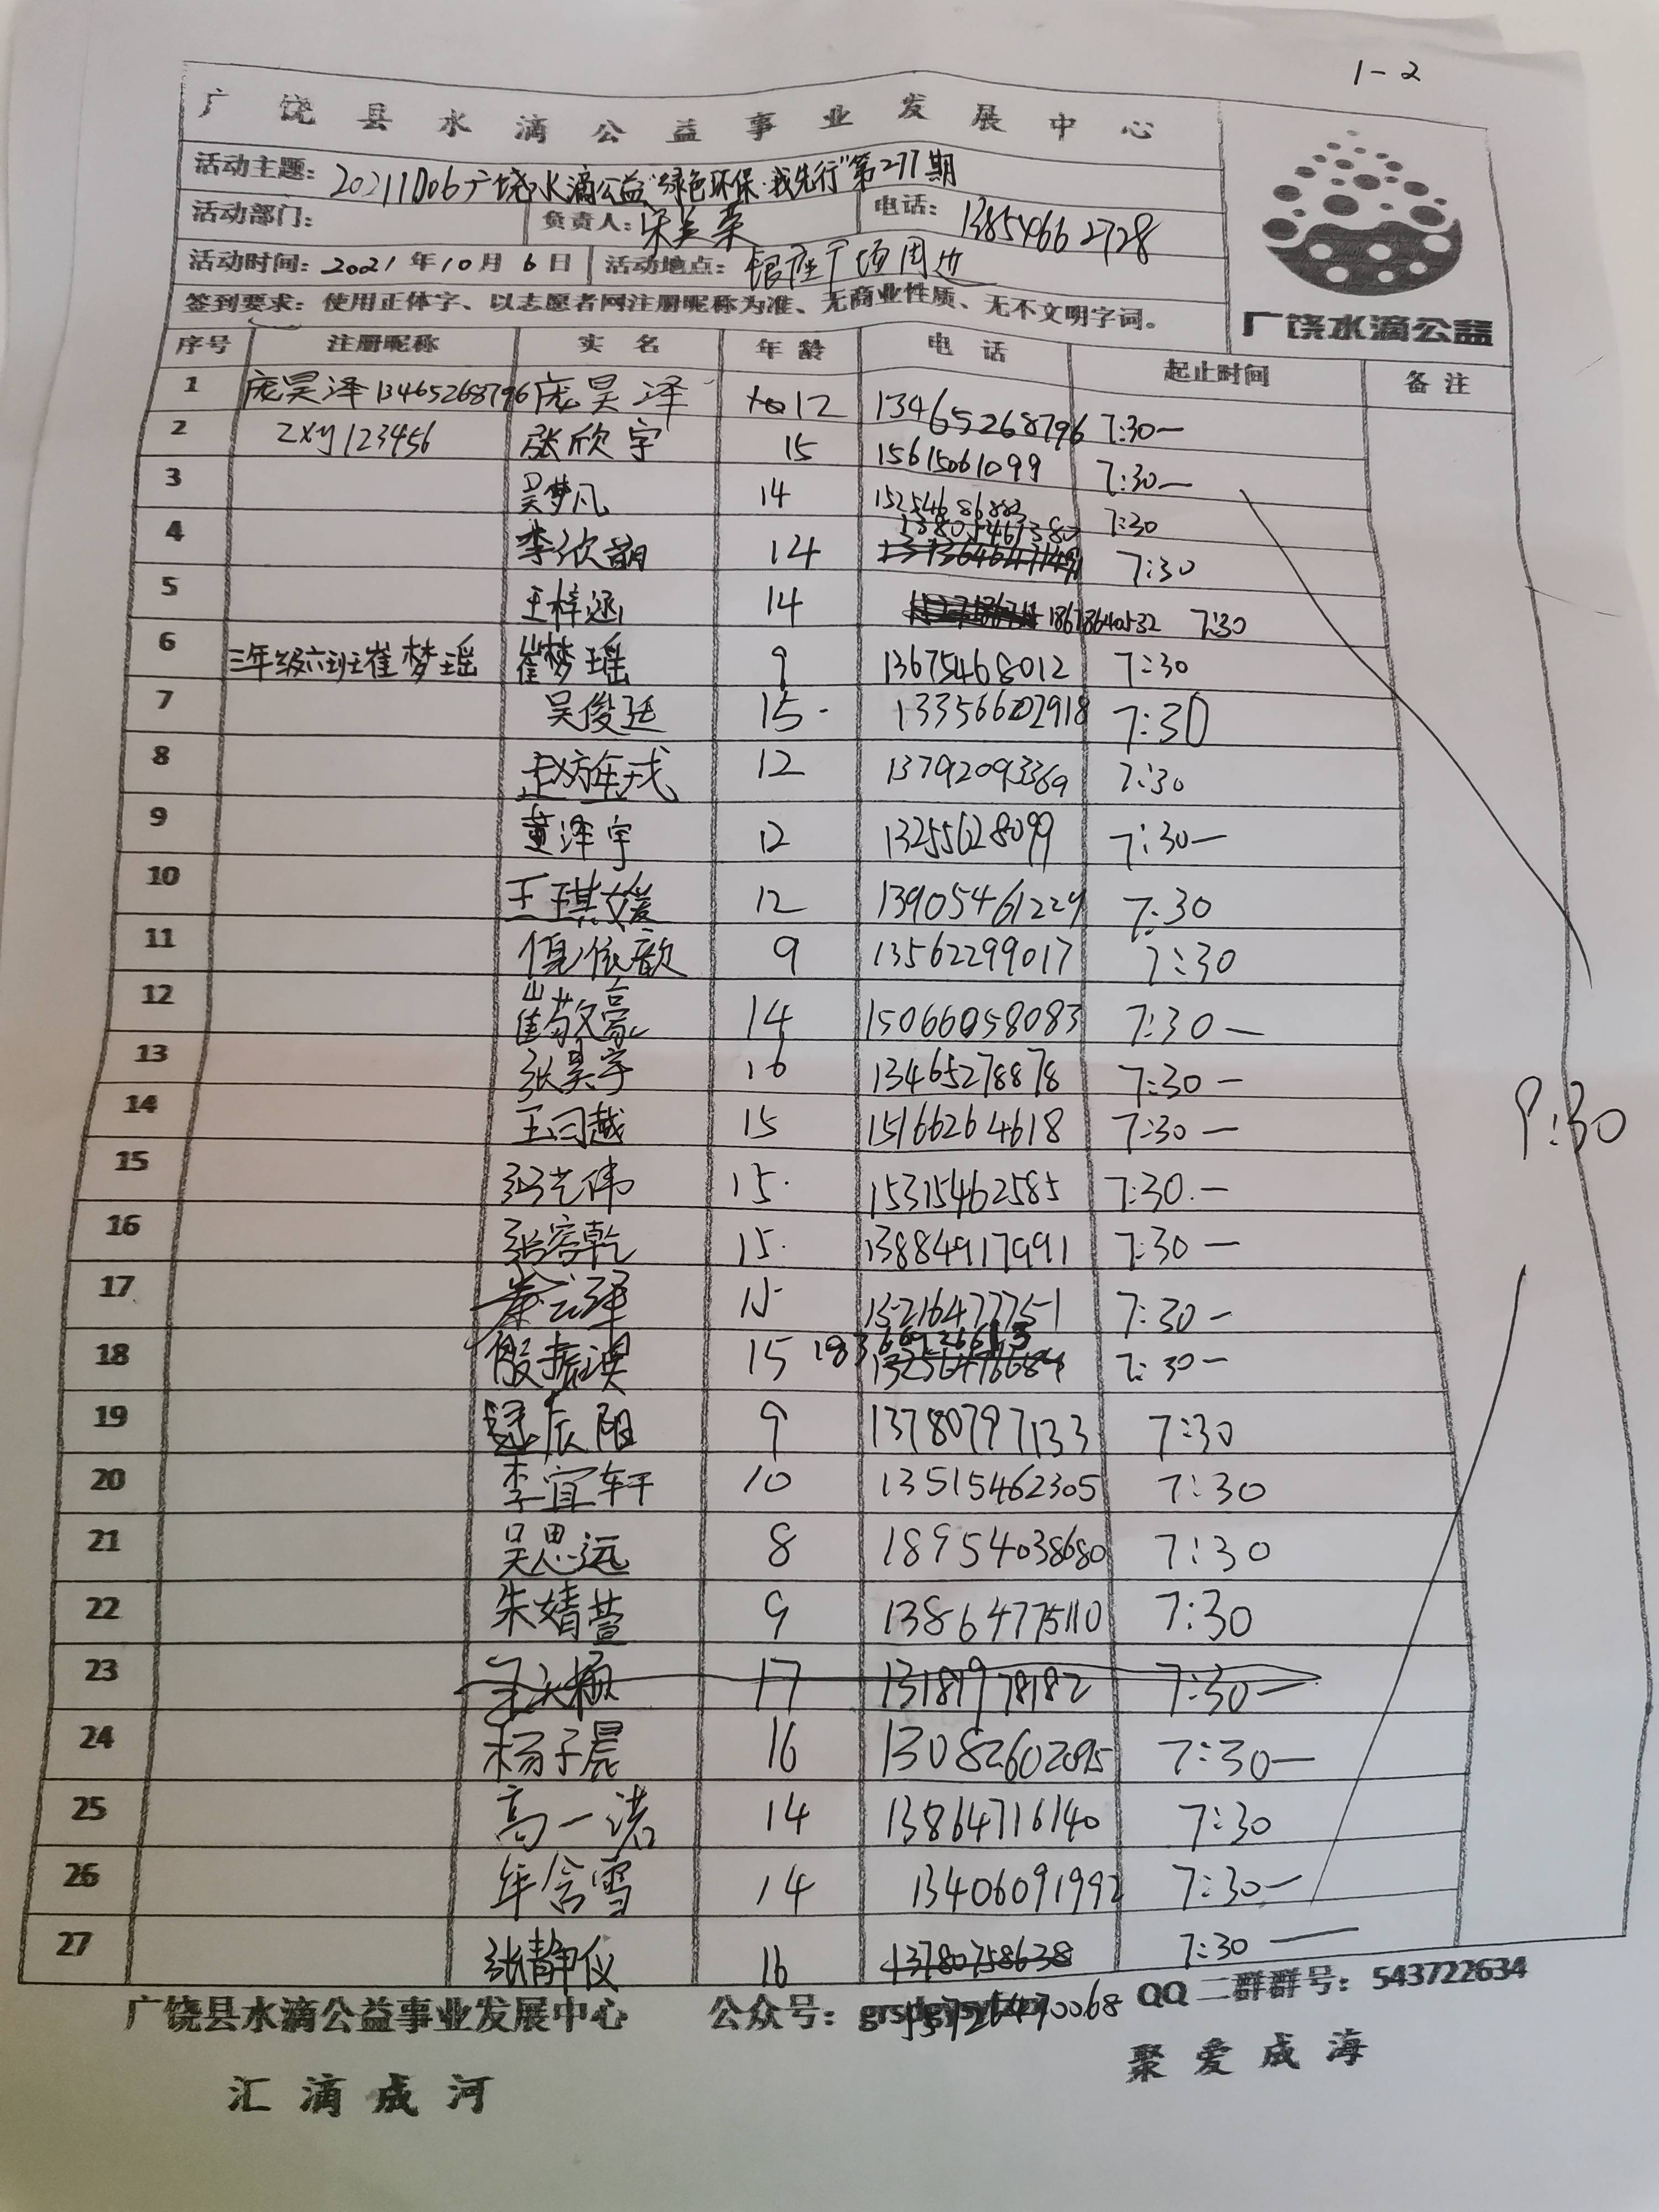 1-2
广饶县水滴公益事业发展中心
活动主题: 20211006广饶水滴公益"绿色环保·我先行"第277期
活动部门: 负责人: 宋兰荣 电话: 13854662728
活动时间: 2021年10月6日 活动地点: 银座广场周边
签到要求: 使用正体字、以志愿者网注册昵称为准、无商业性质、无不文明字词。
广饶水滴公益
序号 注册昵称 实名 年龄 电话 起止时间 备注
1 庞昊泽13465268796 庞昊泽 12 13465268796 7:30—
2 zxy123456 张欣宇 15 15615061099 7:30—
3 吴梦凡 14 15254686883 7:30
4 李欣萌 14 13805461380 7:30
5 王梓涵 14 18678640532 7:30
6 三年级六班崔梦瑶 崔梦瑶 9 13675468012 7:30
7 吴俊廷 15 13356602918 7:30
8 赵旌戎 12 13792093369 7:30
9 黄泽宇 12 13255628099 7:30—
10 王琪媛 12 13905461229 7:30
11 倪依歆 9 13562299017 7:30
12 崔敬亮 14 15066058083 7:30—
13 张昊宇 16 13465278878 7:30—
14 王曰越 15 15166264618 7:30—
15 张艺伟 15 15315462585 7:30—
16 张容乾 15 13884917991 7:30—
17 泽 15 15216477751 7:30—
18 殷振淏 15 7:30—
19 辰阳 9 13780797133 7:30
20 李宜轩 10 13515462305 7:30
21 吴思远 8 18954038680 7:30
22 朱婧萱 9 13864775110 7:30
23 17 13181978182 7:30—
24 杨子晨 16 13082602095 7:30—
25 高一诺 14 13864716140 7:30
26 年含雪 14 13406091992 7:30—
27 张静仪 16 13780758638 7:30—
9:30
广饶县水滴公益事业发展中心 公众号: QQ二群群号: 543722634
汇滴成河 聚爱成海